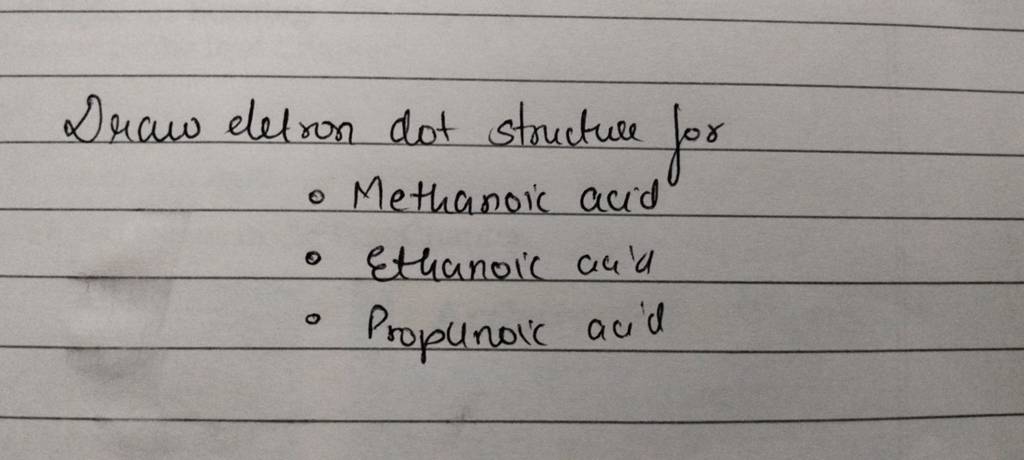 Draw eletron dot structure for
• Methanoic acid
• Ethanoic acid
• Propanoic acid